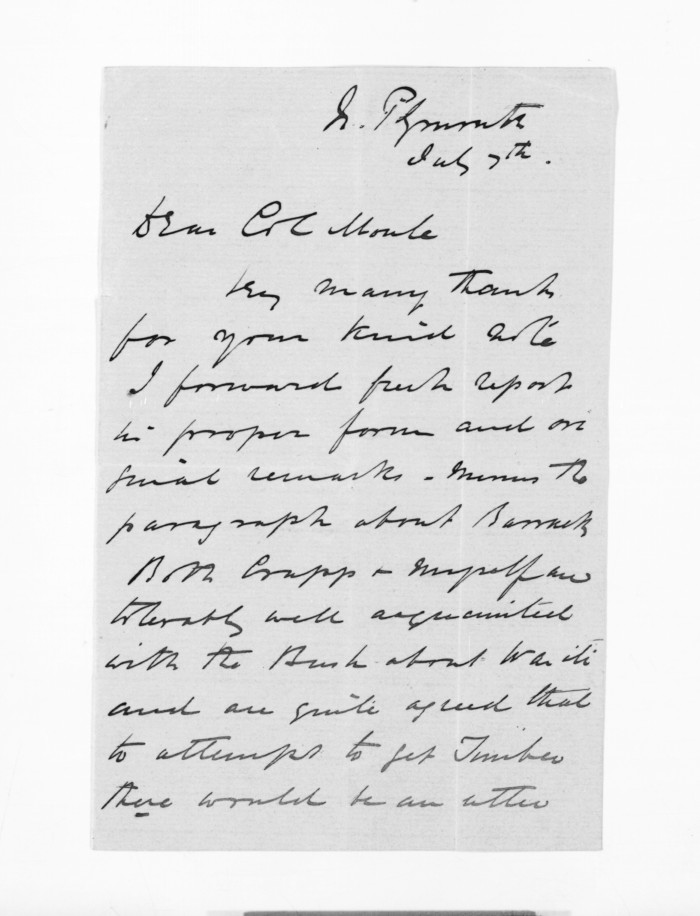 N. Plymouth
July 7th.
Dear Col Moule
Very many thanks
for your kind note
I forward fresh report
in proper form and ori
ginal remarks - minus the
paragraph about Barracks
Both Crapp & Myself are
tolerably well acquainted
with the Bush about Waiiti
and are quite agreed that
to attempt to get Timber
there would be an utter